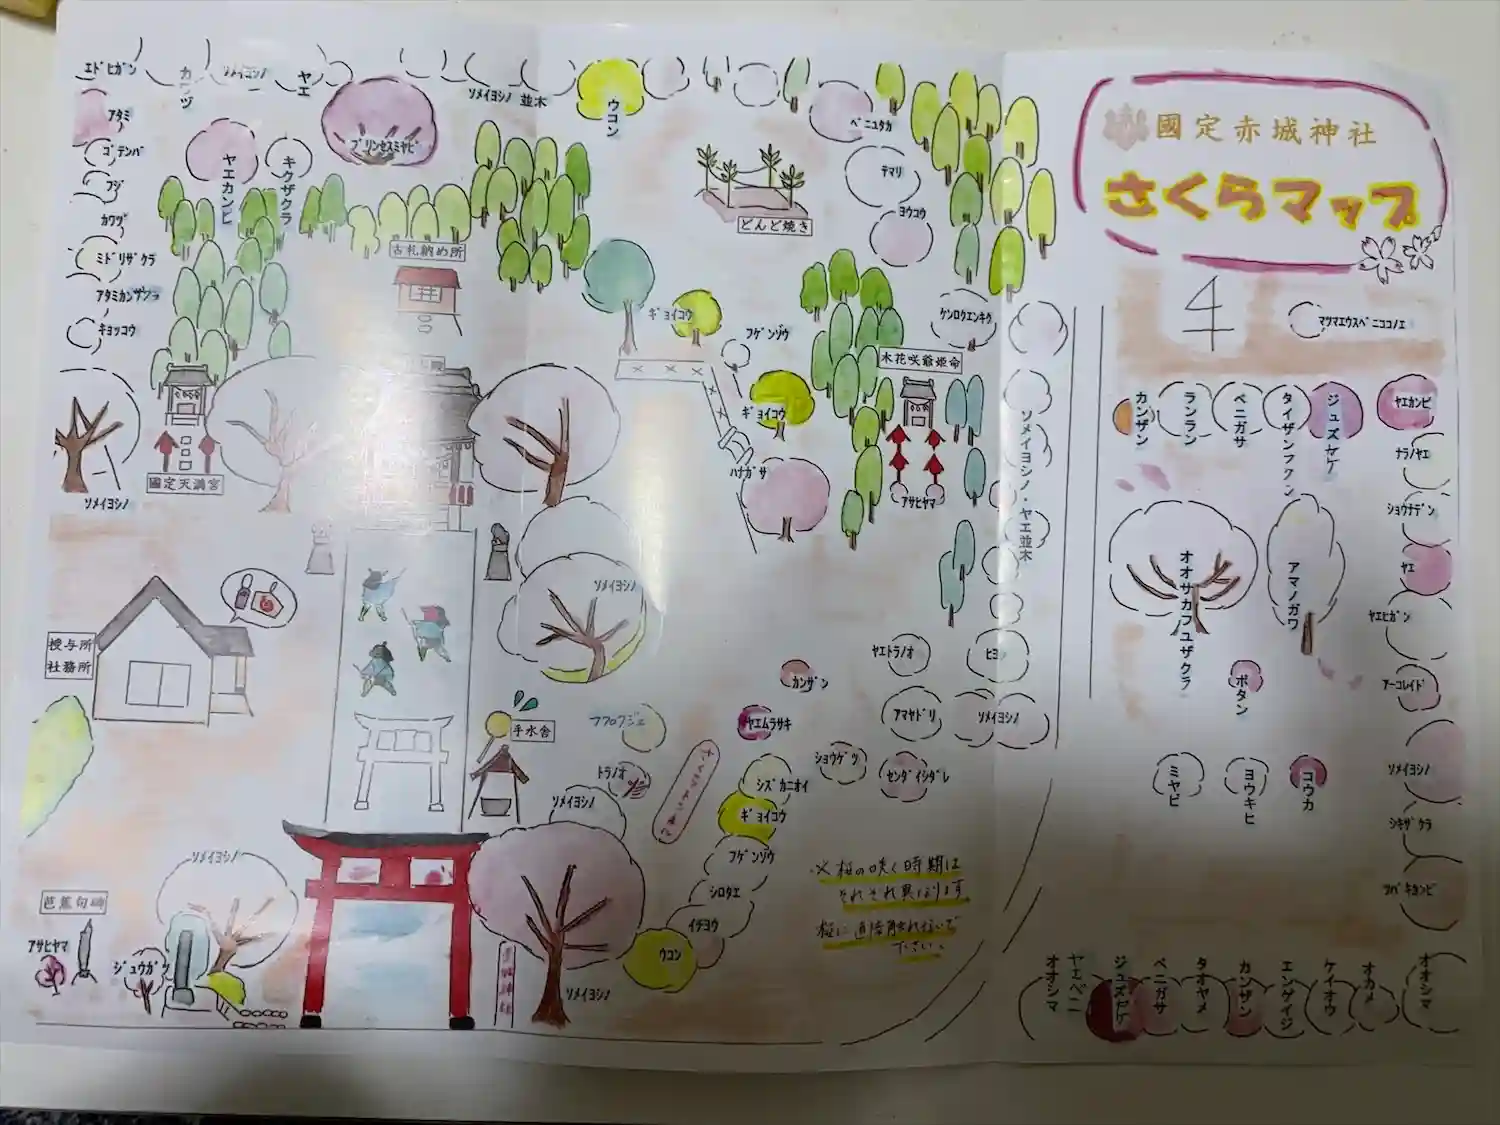 國定赤城神社
さくらマップ
エドヒガン
カワヅ
ソメイヨシノ
ヤエ
ソメイヨシノ 並木
ウコン
ベニユタカ
アタミ
ゴテンバ
フジ
カワヅ
ミドリザクラ
アタミカンザクラ
キョッコウ
ヤエカンヒ
キクザクラ
プリンセスミヤビ
古札納め所
どんど焼き
テマリ
ヨウコウ
ギョイコウ
フゲンゾウ
ケンロクエンキク
木花咲爺姫命
ギョイコウ
ハナガサ
アサヒヤマ
ソメイヨシノ・ヤエ並木
ソメイヨシノ
國定天満宮
ソメイヨシノ
授与所
社務所
手水舎
カンザン
ヤエムラサキ
ヤエトラノオ
ヒヨシ
アマヤドリ
ソメイヨシノ
トラノオ
ソメイヨシノ
ショウゲツ
センダイシダレ
シズカニオイ
ギョイコウ
フゲンゾウ
シロタエ
イチヨウ
ウコン
ソメイヨシノ
ソメイヨシノ
芭蕉句碑
アサヒヤマ
ジュウガツ
※桜の咲く時期は
それぞれ異なります。
桜に直接触れないで
下さい。
マツマエウスベニココノエ
カンザン
ランラン
ベニガサ
タイザンフクン
ジュズカケ
ヤエカンヒ
ナラノヤエ
ショウナデン
ヤエ
ヤエヒガン
アーコレイド
ソメイヨシノ
シキザクラ
ツバキカンヒ
オオサカフユザクラ
アマノガワ
ボタン
ミヤビ
ヨウキヒ
コウカ
オオシマ
ヤエベニ
ジュズカケ
ベニガサ
タオヤメ
カンザン
エンゲイジ
ケイオウ
オカメ
オオシマ